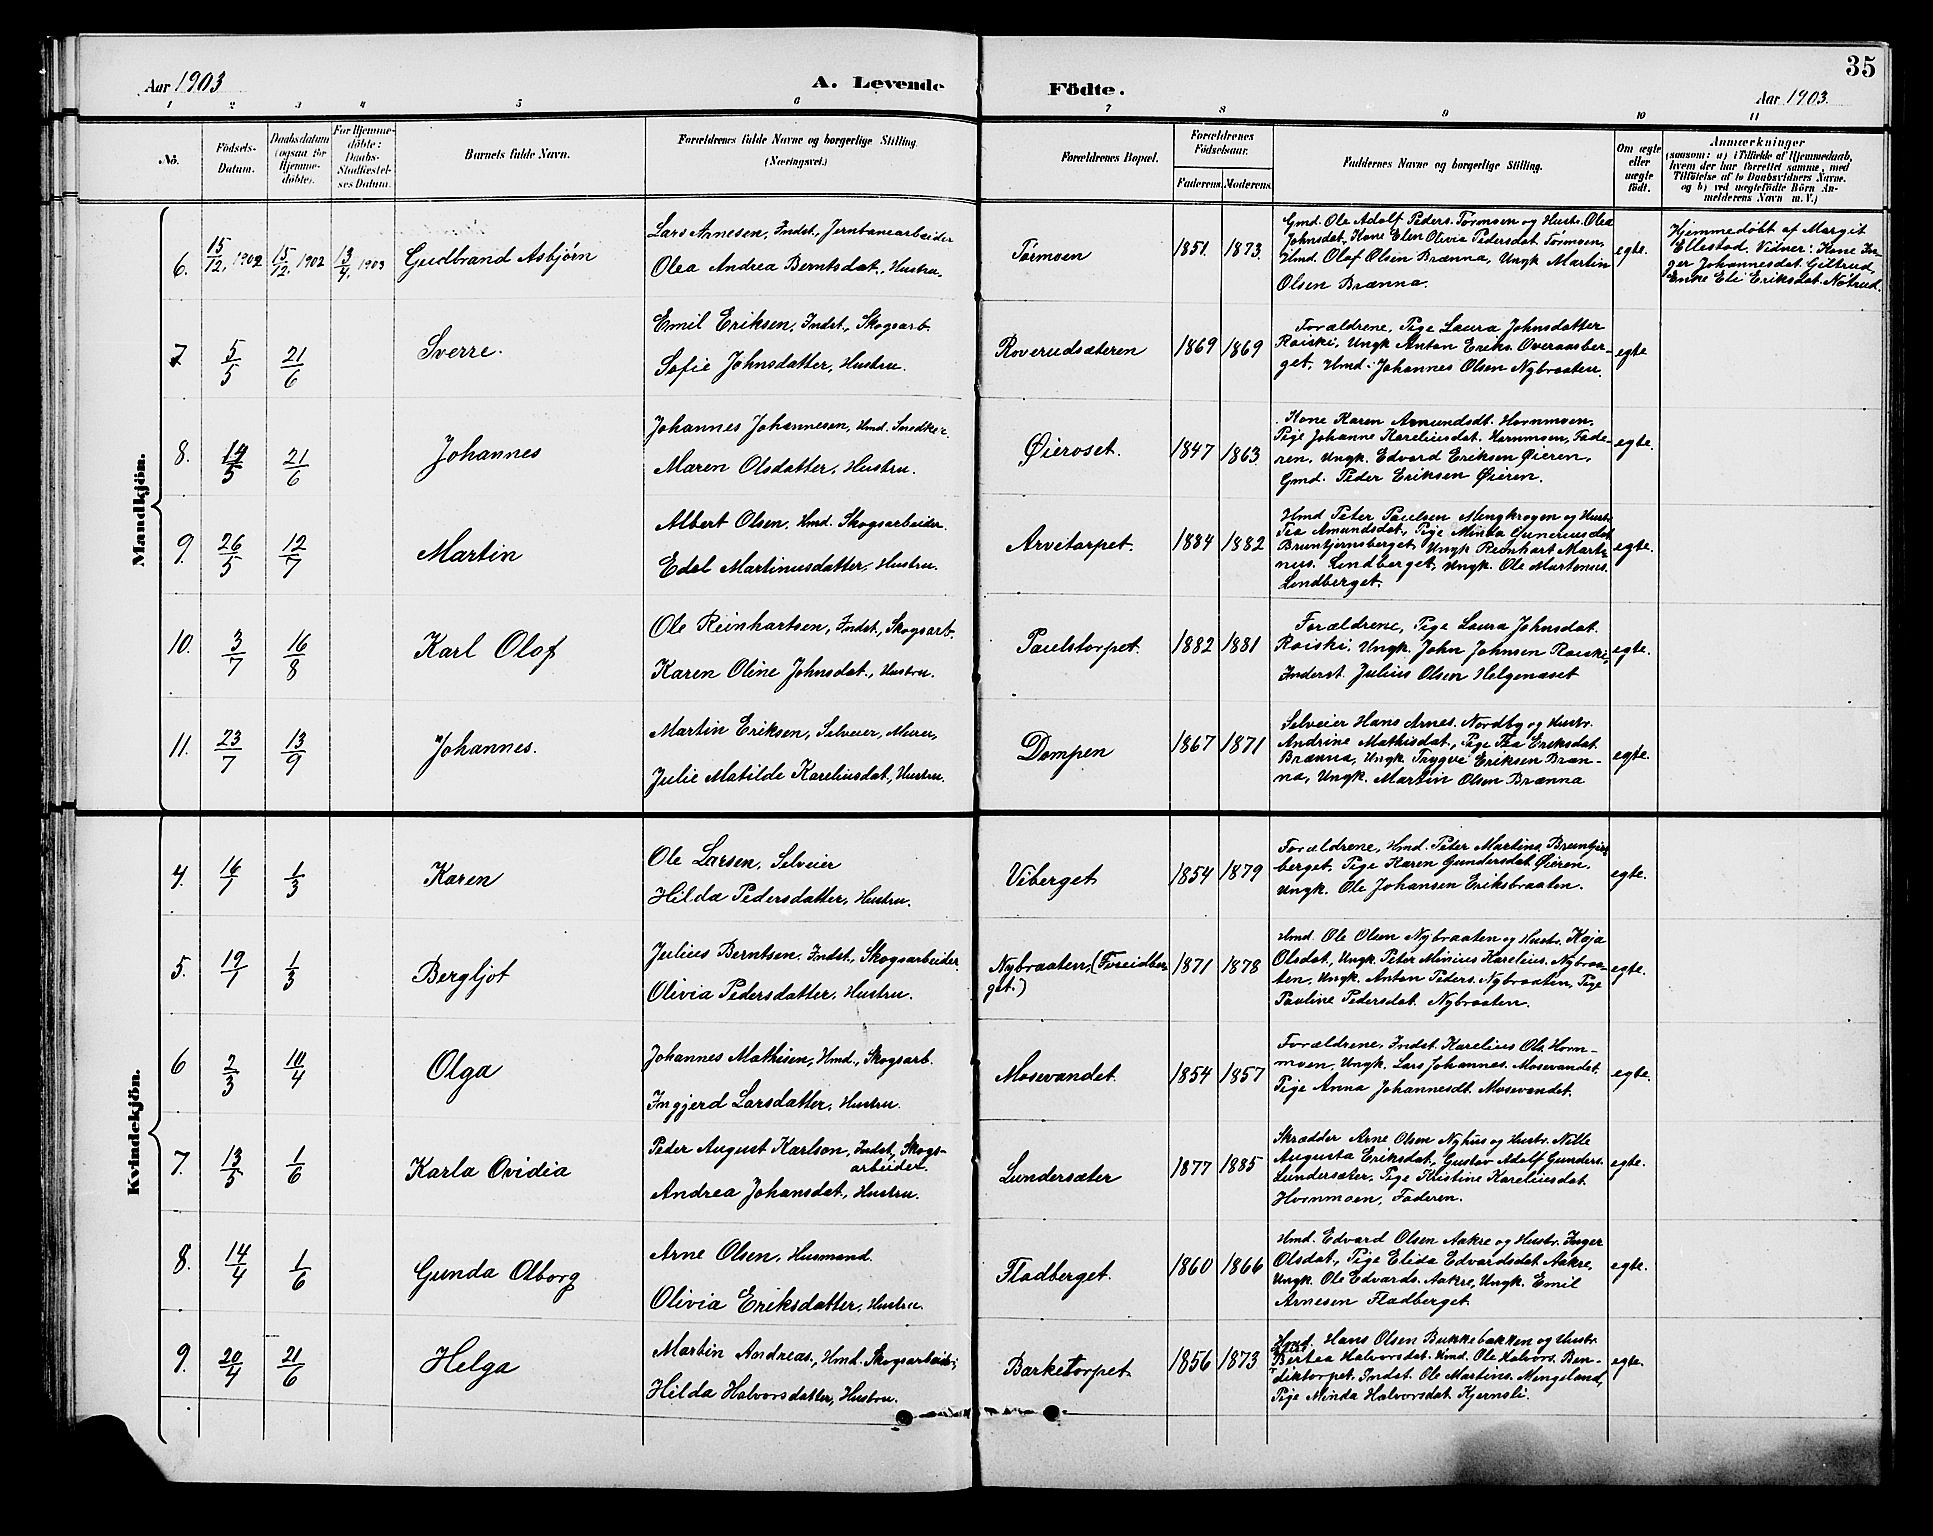 35
Aar 1903
A. Levende
Födte.
Aar 1903.
1 2 3 4 5 6 7 8 9 10 11
No.
Födsels-
Datum.
Daabsdatum
(ogsaa for
Hjemme-
döbte).
For Hjemme-
döbte:
Daabs-
Stadfæstel-
ses Datum.
Barnets fulde Navn.
Forældrenes fulde Navne og borgerlige Stilling.
(Næringsvei.)
Forældrenes Bopæl.
Forældrenes
Födselsaar.
Faderens. Moderens.
Faddernes Navne og borgerlige Stilling.
Om ægte
eller
uægte
födt.
Anmærkninger
(saasom: a) i Tilfælde af Hjemmedaab,
hvem der har forrettet samme, med
Tilföielse af to Daabsvidners Navne.
og b) ved uægtefödte Börn An-
melderens Navn m. V.)
Mandkjön.
6. 15/12 1902 15/12 1902 13/4 1903 Gudbrand Asbjørn
Lars Arnesen, Indst., Jernbanearbeider
Olea Andrea Berntsdat., Hustru.
Tørmoen 1851. 1873.
Gmd. Ole Adolf Peders. Tørmoen og Hustr. Olea
Johnsdat., Kone Elen Olivia Pedersdat. Tørmoen,
Hmd. Olaf Olsen Brænna, Ungk. Martin
Olsen Brænna.
egte.
Hjemmedøbt af Margit
Ellestad. Vidner: Kone In-
ger Johannesdat. Giltrud,
Enke Eli Eriksdat. Nøtrud.
7 5/5 21/6 Sverre.
Emil Eriksen, Indst., Skogsarb.
Sofie Johnsdatter, Hustru.
Roverudsæteren 1869 1869
Forældrene, Pige Laura Johnsdatter
Roiski, Ungk. Anton Eriks. Overaasber-
get, Hmd. Johannes Olsen Nybraaten.
egte
8. 19/5 21/6 Johannes
Johannes Johannesen, Hmd. Snedker.
Maren Olsdatter, Hustru.
Øieroset. 1847 1863
Kone Karen Amundsdt. Hornmoen,
Pige Johanne Kareliusdat. Hornmoen, Fade-
ren, Ungk. Edvard Eriksen Øieren,
Gmd. Peder Eriksen Øieren.
egte.
9. 26/5 12/7 Martin
Albert Olsen, Hmd. Skogsarbeider.
Edel Martinusdatter, Hustru.
Arvitorpet. 1884 1882
Hmd Peter Paulsen Mengkrogen og Hustr.
Tea Amundsdat., Pige Minda Guneriusdat
Bruntjernsberget, Ungk Reinhart Marti-
nus. Lindberget, Ungk. Ole Martinius.
Lindberget.
egte.
10. 3/7 16/8 Karl Olof
Ole Reinhartsen, Indst., Skogsarb.
Karen Oline Johnsdat., Hustru.
Paulstorpet. 1882 1881
Forældrene, Pige Laura Johnsdat.
Roiski, Ungk. John Johnsen Roiski,
Inderst. Julius Olsen Helgenæset
egte.
11. 23/7 13/9 Johannes.
Martin Eriksen, Selveier, Murer,
Julie Matilde Kareliusdat, Hustru.
Dompen 1867 1871
Selveier Hans Arnes. Nordby og Hustr.
Andrine Mathisdat., Pige Tea Eriksdat.
Brænna, Ungk. Trygve Eriksen Bræn-
na, Ungk. Martin Olsen Brænna
egte.
Kvindekjön.
4. 16/1 1/3 Karen
Ole Larsen, Selveier
Hilda Pedersdatter, Hustru.
Viberget 1854 1879
Forældrene, Hmd. Peder Martins. Bruntjern-
berget. Pige Karen Gundersdat. Øieren.
Ungk. Ole Johansen Eriksbraaten.
egte.
5. 19/1 1/3 Bergljot
Julius Berntsen. Indst., Skogsarbeider.
Olivia Pedersdatter, Hustru.
Nybraaten,
get.) 1871 1878
Hmd. Ole Olsen Nybraaten og Hustr. Kaja
Olsdat., Ungk. Peter Minius Karelius. Nybraa-
ten, Ungk. Anton Peders. Nybraaten, Pige
Pauline Pedersdat. Nybraaten.
egte.
6 2/3 10/4 Olga
Johannes Mathisen, Hmd., Skogsarb.
Ingjerd Larsdatter, Hustru.
Mosevandet. 1854 1857
Forældrene, Indst. Karelius Ols. Horn-
moen, Ungk. Lars Johannes. Mosevandet,
Pige Anna Johannesdt. Mosevandet.
egte.
7. 13/5 1/6 Karla Ovidia
Peder August Karlson, Indst., Skogs-
arbeider.
Andrea Johansdat., Hustru.
Lundersæter 1877 1885
Skrædder Arne Olsen Nyhus og Hustr. Nille
Augusta Eriksdat., Gustav Adolf Gunders.
Lundersæter. Pige Kristine Kareliusdat.
Hornmoen, Faderen.
egte.
8. 14/4 1/6 Gunda Olborg
Arne Olsen, Husmand.
Olivia Eriksdatter, Hustru.
Fladberget. 1860 1866
Hmd. Edvard Olsen Aakre og Hustr. Inger
Olsdat., Pige Elida Edvardsdat. Aakre,
Ungk. Ole Edvards. Aakre, Ungk. Emil
Arnesen Fladberget.
egte.
9. 20/4 21/6 Helga
Martin Andreas., Hmd. Skogsarbeid.,
Hilda Halvorsdatter, Hustru.
Barketorpet 1856 1873
Hmd. Hans Olsen Bukkebakken og Hustr.
Bertea Halvorsdat. Hmd. Ole Halvors. Ben-
diktorpet. Indst. Ole Martins. Mengsland,
Pige Minda Halvorsdat. Kjernsli.
egte.